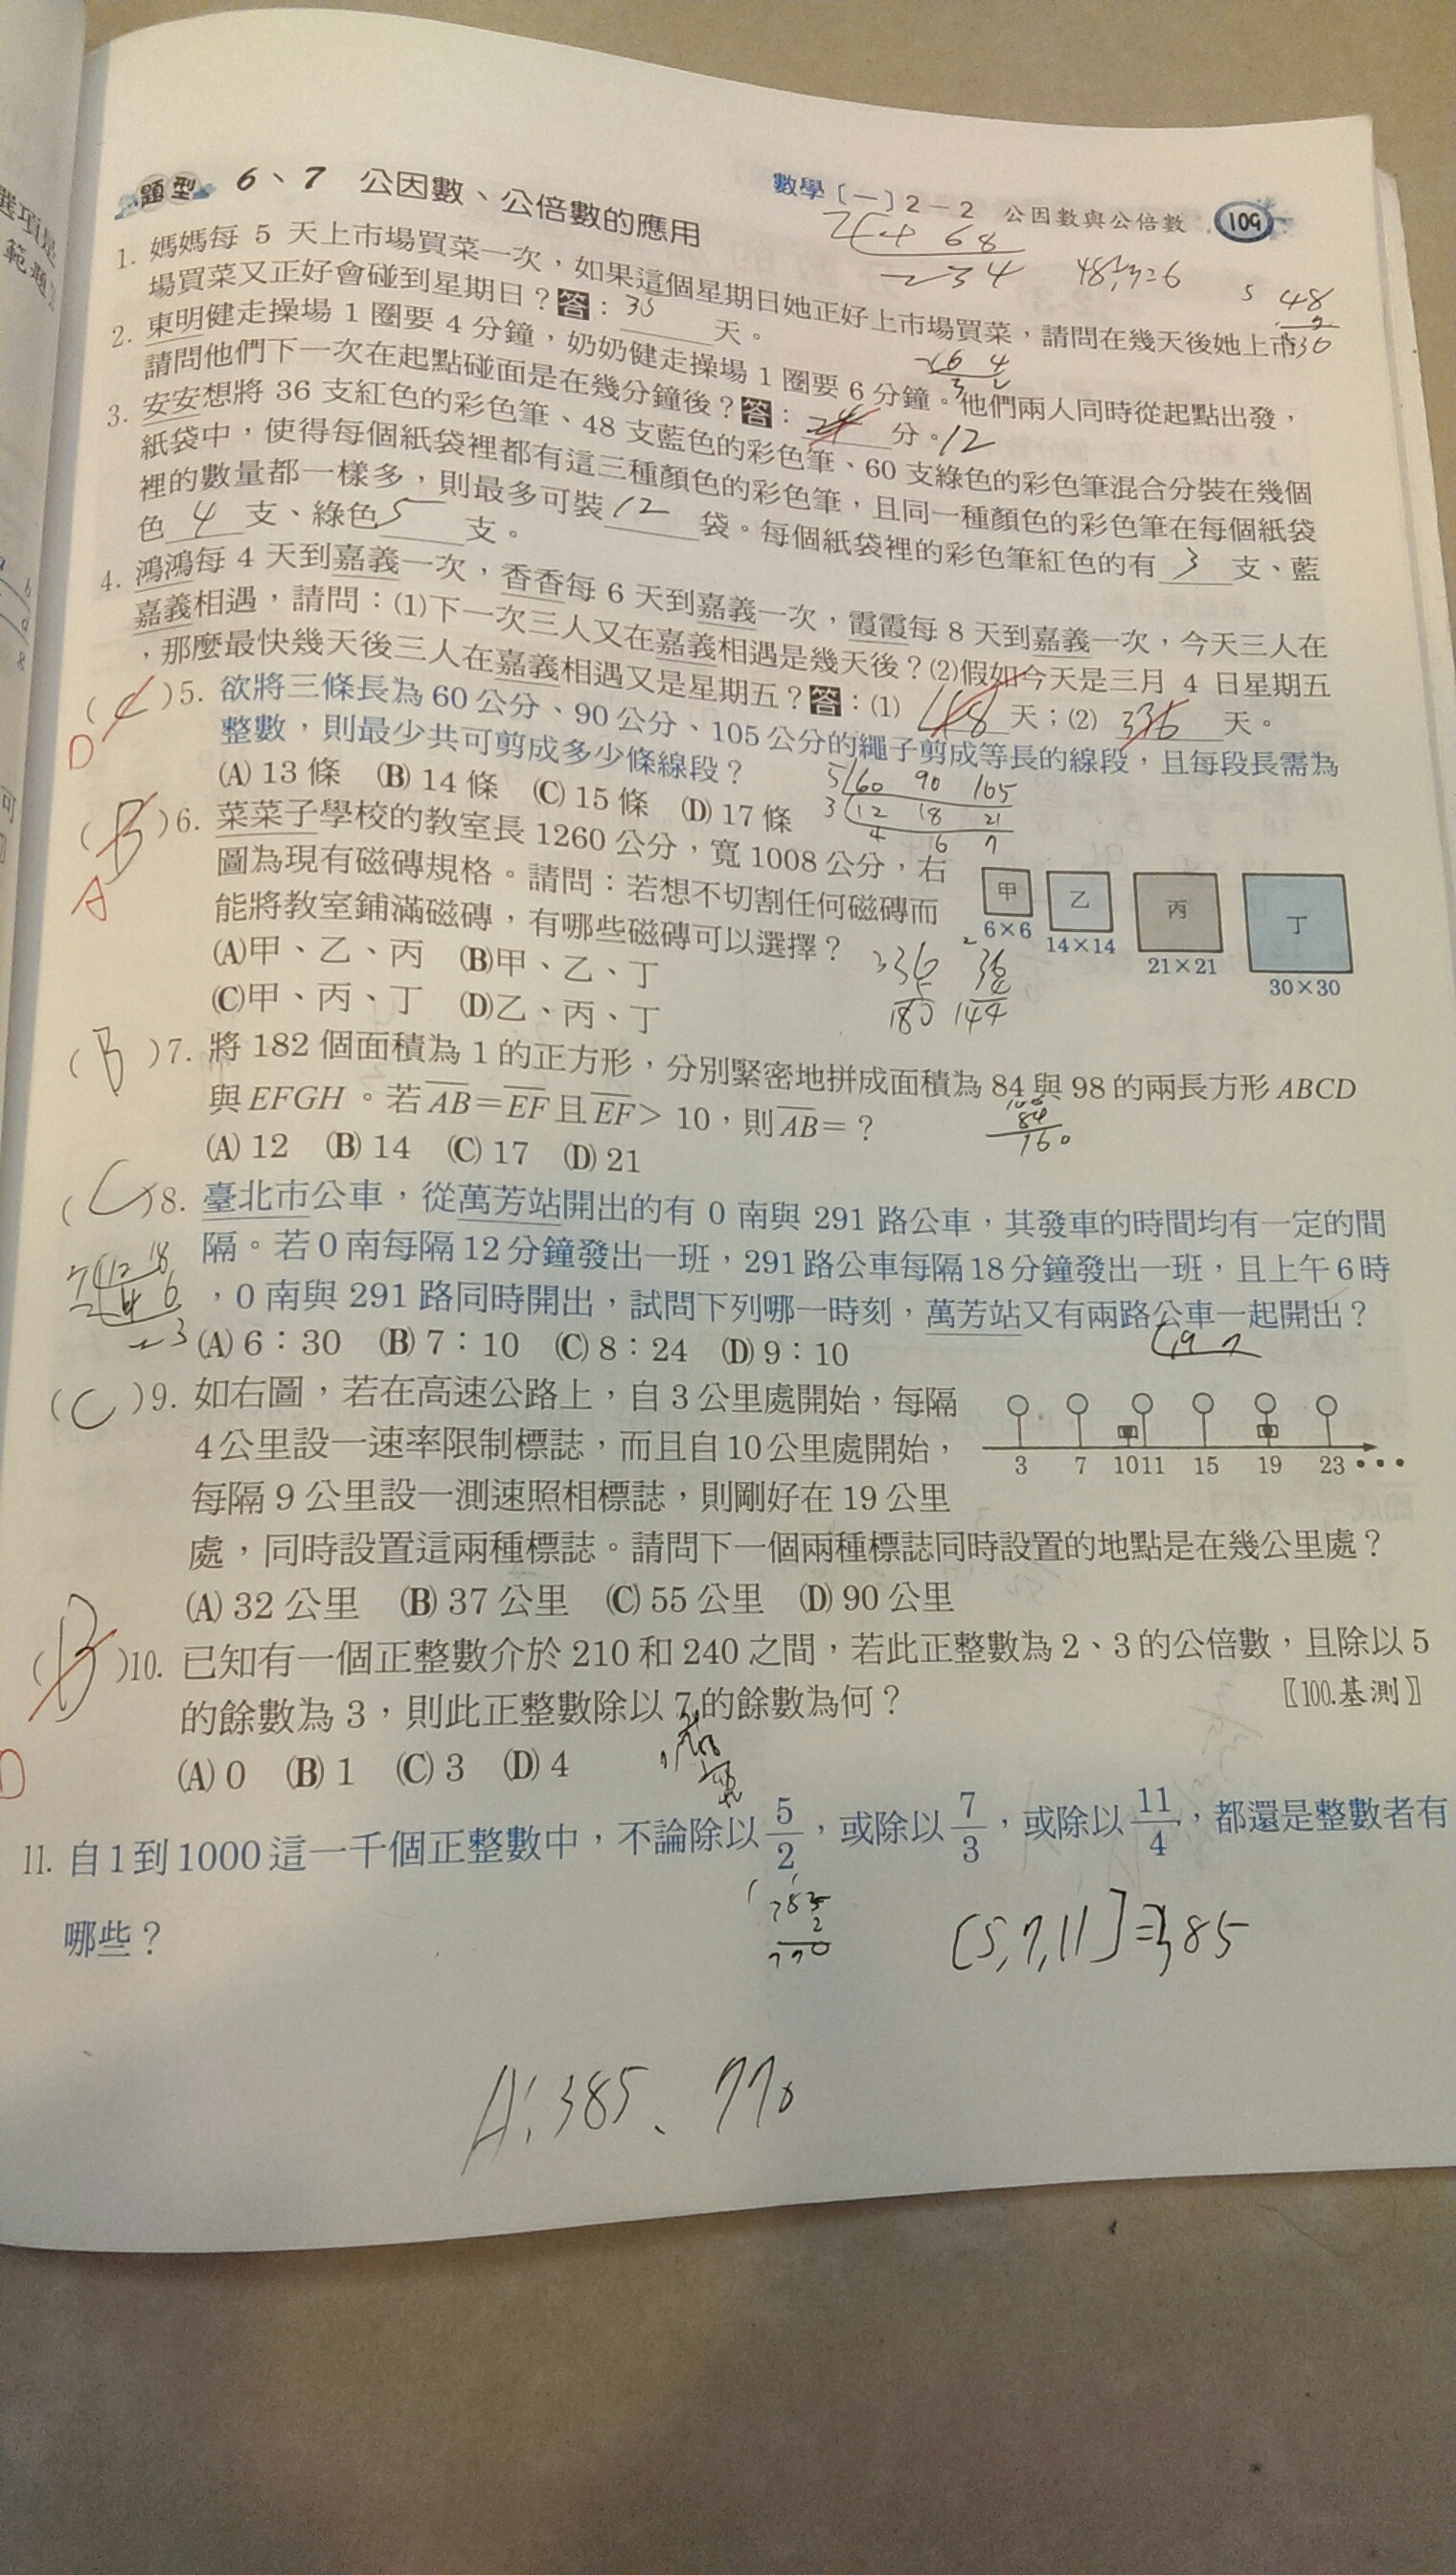 題型 6、7 公因數、公倍數的應用
數學〔一〕2－2 公因數與公倍數 109
2 4 6 8
2 3 4
48÷7=6
1. 媽媽每 5 天上市場買菜一次，如果這個星期日她正好上市場買菜，請問在幾天後她上市
場買菜又正好會碰到星期日？答：35天。
2. 東明健走操場 1 圈要 4 分鐘，奶奶健走操場 1 圈要 6 分鐘。他們兩人同時從起點出發，
請問他們下一次在起點碰面是在幾分鐘後？答：24分。12
3. 安安想將 36 支紅色的彩色筆、48 支藍色的彩色筆、60 支綠色的彩色筆混合分裝在幾個
紙袋中，使得每個紙袋裡都有這三種顏色的彩色筆，且同一種顏色的彩色筆在每個紙袋
裡的數量都一樣多，則最多可裝12袋。每個紙袋裡的彩色筆紅色的有3支、藍
色4支、綠色5支。
4. 鴻鴻每 4 天到嘉義一次，香香每 6 天到嘉義一次，霞霞每 8 天到嘉義一次，今天三人在
嘉義相遇，請問：(1)下一次三人又在嘉義相遇是幾天後？(2)假如今天是三月 4 日星期五
，那麼最快幾天後三人在嘉義相遇又是星期五？答：(1)48天；(2)336天。
( C )5. 欲將三條長為 60 公分、90 公分、105 公分的繩子剪成等長的線段，且每段長需為
D
整數，則最少共可剪成多少條線段？
(A) 13 條 (B) 14 條 (C) 15 條 (D) 17 條
5 60 90 105
3 12 18 21
4 6 7
( B )6. 菜菜子學校的教室長 1260 公分，寬 1008 公分，右
A
圖為現有磁磚規格。請問：若想不切割任何磁磚而
能將教室鋪滿磁磚，有哪些磁磚可以選擇？
(A)甲、乙、丙 (B)甲、乙、丁
(C)甲、丙、丁 (D)乙、丙、丁
甲 乙 丙 丁
6×6 14×14 21×21 30×30
180 144
( B )7. 將 182 個面積為 1 的正方形，分別緊密地拼成面積為 84 與 98 的兩長方形 ABCD
與 EFGH。若 AB＝EF 且 EF＞10，則 AB＝？
(A) 12 (B) 14 (C) 17 (D) 21
( C )8. 臺北市公車，從萬芳站開出的有 0 南與 291 路公車，其發車的時間均有一定的間
隔。若 0 南每隔 12 分鐘發出一班，291 路公車每隔 18 分鐘發出一班，且上午 6 時
，0 南與 291 路同時開出，試問下列哪一時刻，萬芳站又有兩路公車一起開出？
(A) 6：30 (B) 7：10 (C) 8：24 (D) 9：10
( C )9. 如右圖，若在高速公路上，自 3 公里處開始，每隔
4 公里設一速率限制標誌，而且自 10 公里處開始，
每隔 9 公里設一測速照相標誌，則剛好在 19 公里
處，同時設置這兩種標誌。請問下一個兩種標誌同時設置的地點是在幾公里處？
3 7 10 11 15 19 23
(A) 32 公里 (B) 37 公里 (C) 55 公里 (D) 90 公里
( B )10. 已知有一個正整數介於 210 和 240 之間，若此正整數為 2、3 的公倍數，且除以 5
的餘數為 3，則此正整數除以 7 的餘數為何？ 〖100.基測〗
D
(A) 0 (B) 1 (C) 3 (D) 4
11. 自 1 到 1000 這一千個正整數中，不論除以 5/2，或除以 7/3，或除以 11/4，都還是整數者有
哪些？
385
2
770
[5,7,11]=385
A：385、770